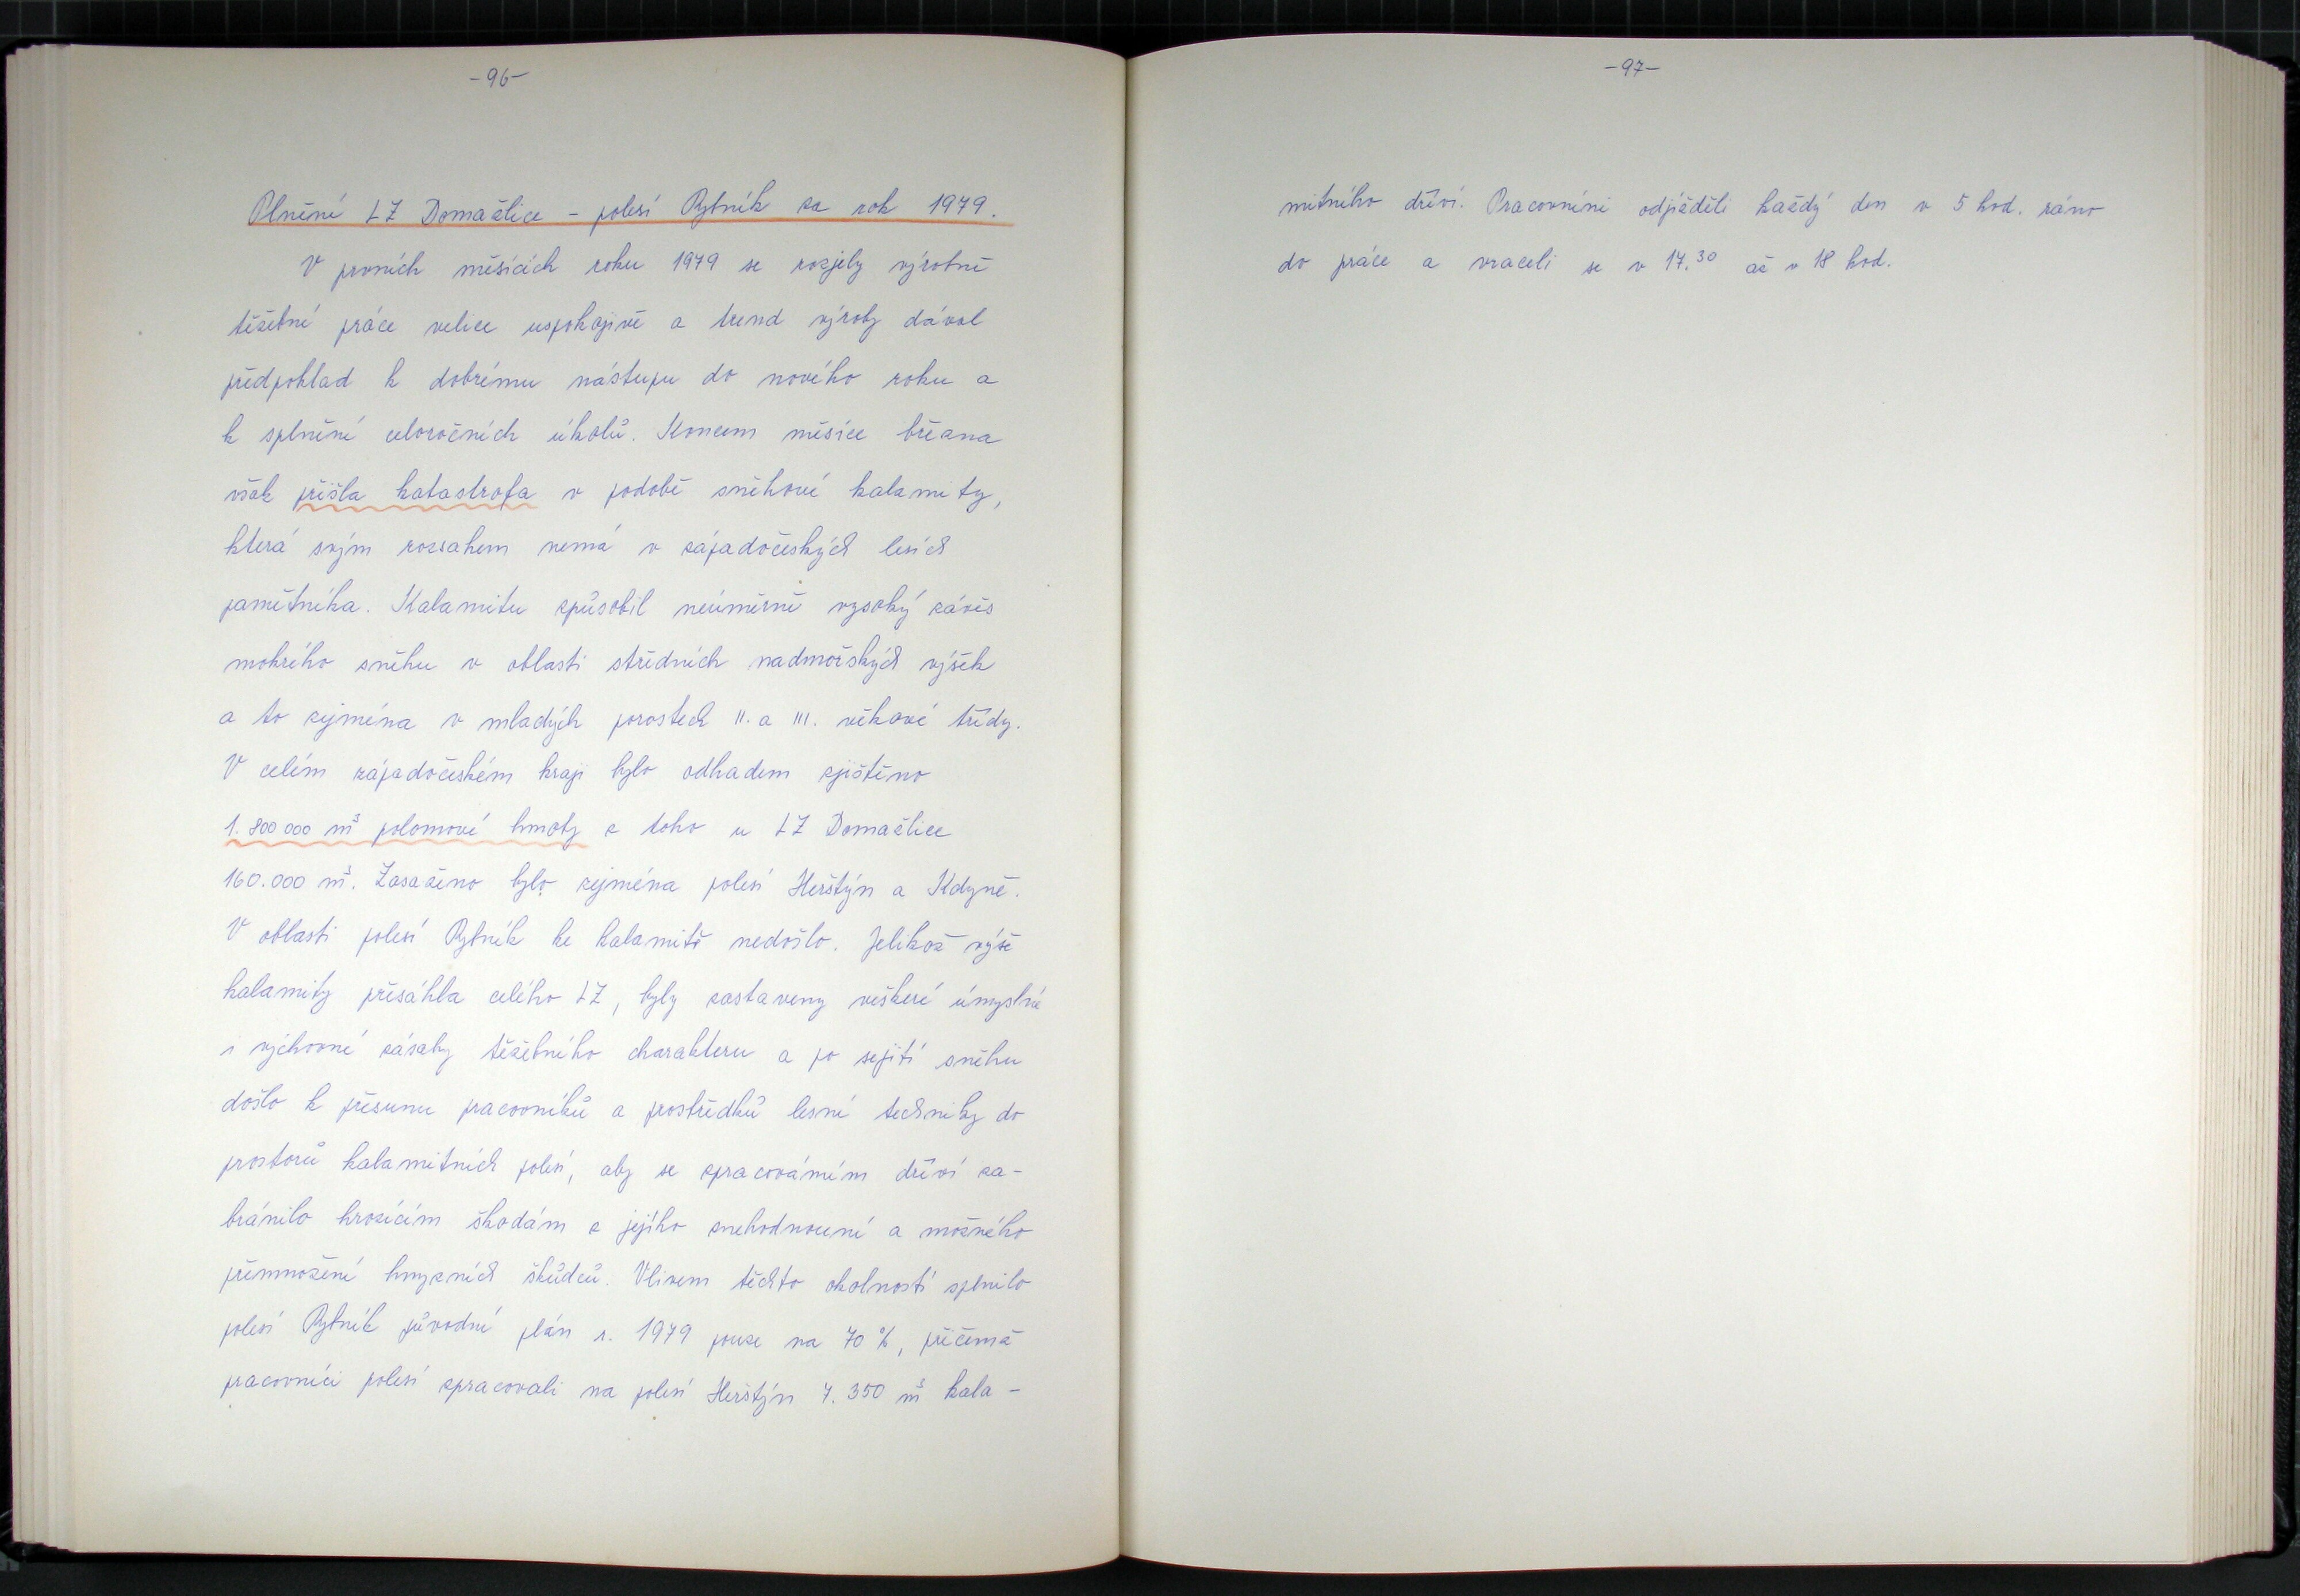 -96-
Plnění LZ Domažlice - polesí Rybník za rok 1979.
V prvních měsících roku 1979 se rozjely výrobně
těžební práce velice uspokojivě a trend výroby dával
předpoklad k dobrému nástupu do nového roku a
k splnění celoročních úkolů. Koncem měsíce března
však přišla katastrofa v podobě sněhové kalamity,
která svým rozsahem nemá v západočeských lesích
pamětníka. Kalamitu způsobil neúměrně vysoký závěs
mokrého sněhu v oblasti středních nadmořských výšek
a to zejména v mladých porostech II. a III. věkové třídy.
V celém západočeském kraji bylo odhadem zjištěno
1.800 000 m³ polomové hmoty z toho u LZ Domažlice
160.000 m³. Zasaženo bylo zejména polesí Herštýn a Kdyně.
V oblasti polesí Rybník ke kalamitě nedošlo. Jelikož výše
kalamity přesáhla celého LZ, byly zastaveny veškeré úmyslné
i výchovné zásahy těžebního charakteru a po sejití sněhu
došlo k přesunu pracovníků a prostředků lesní techniky do
prostorů kalamitních polesí, aby se zpracováním dříví za-
bránilo hrozícím škodám z jejího znehodnocení a možného
přemnožení hmyzních škůdců. Vlivem těchto okolností splnilo
polesí Rybník původní plán r. 1979 pouze na 70 %, přičemž
pracovníci polesí zpracovali na polesí Herštýn 7.350 m³ kala-
-97-
mitního dříví. Pracovníni odjížděli každý den v 5 hod. ráno
do práce a vraceli se v 17.30 až v 18 hod.